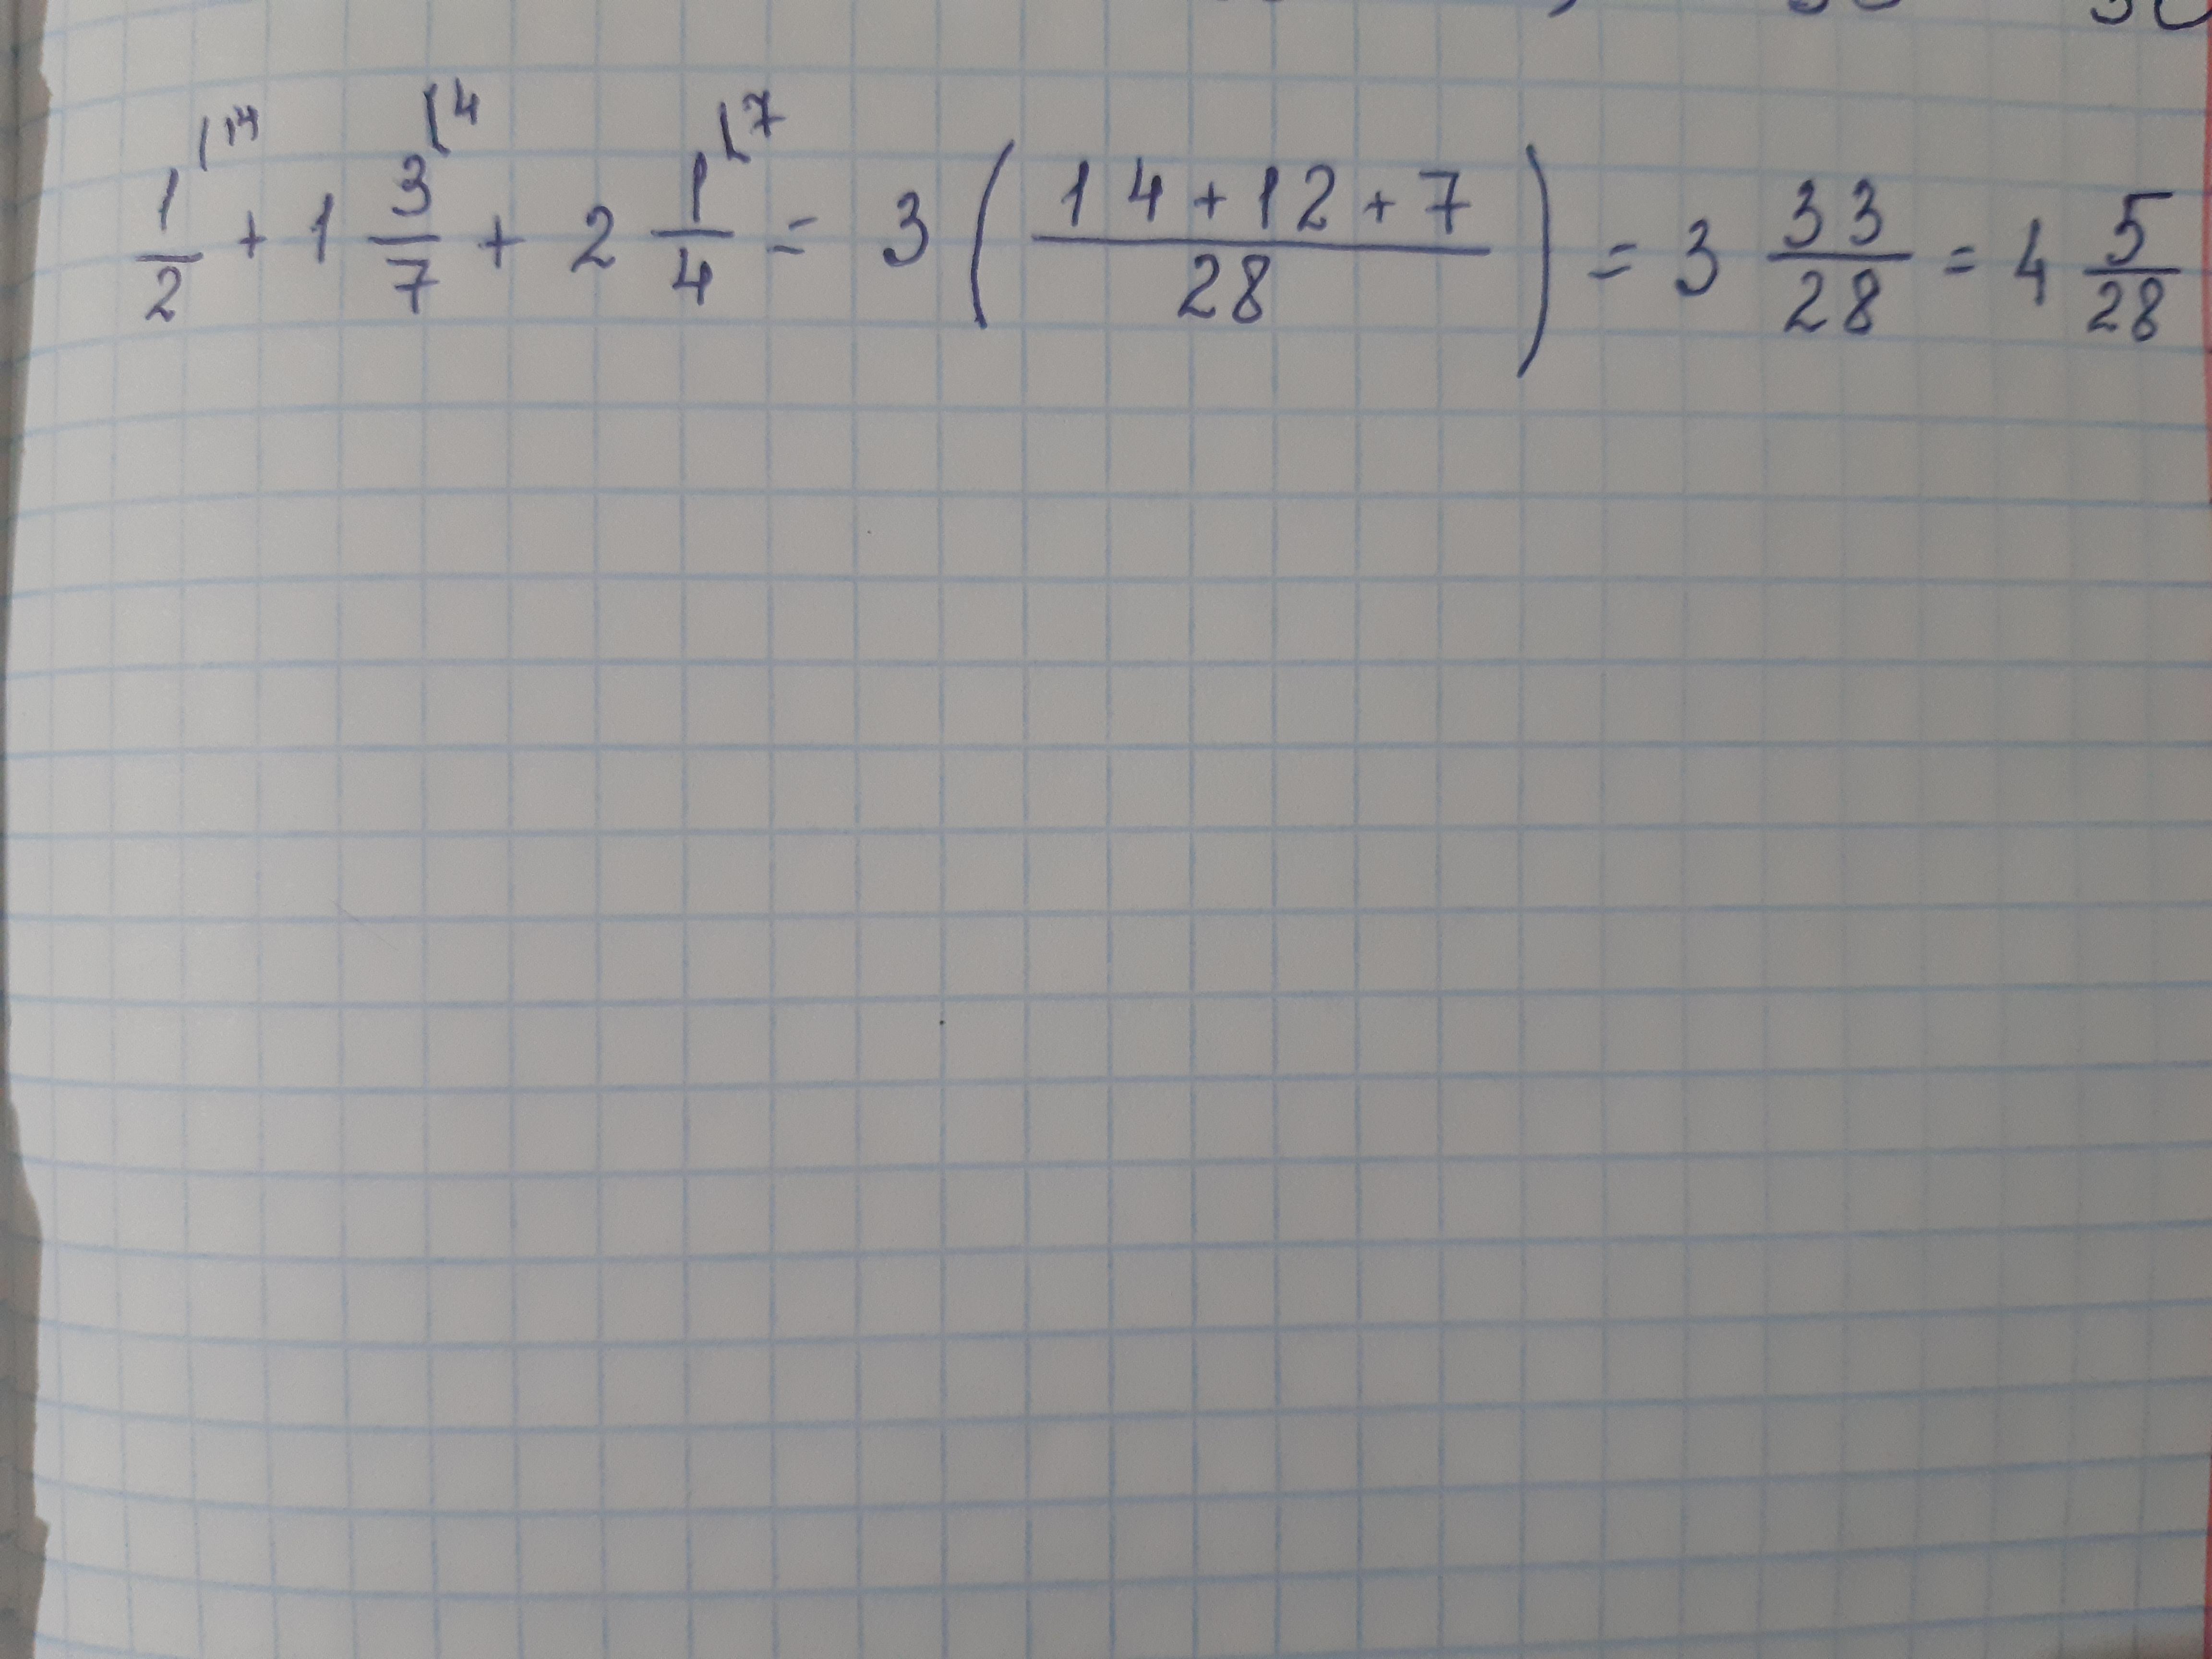 1/2 ⌊14 + 1 3/7 ⌊4 + 2 1/4 ⌊7 = 3 ( 14+12+7 / 28 ) = 3 33/28 = 4 5/28